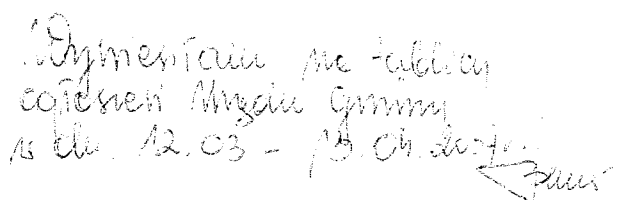 Wywiesiłam na tablicy
ogłoszeń Urzędu Gminy
w dn. 12.03 – 13.04.